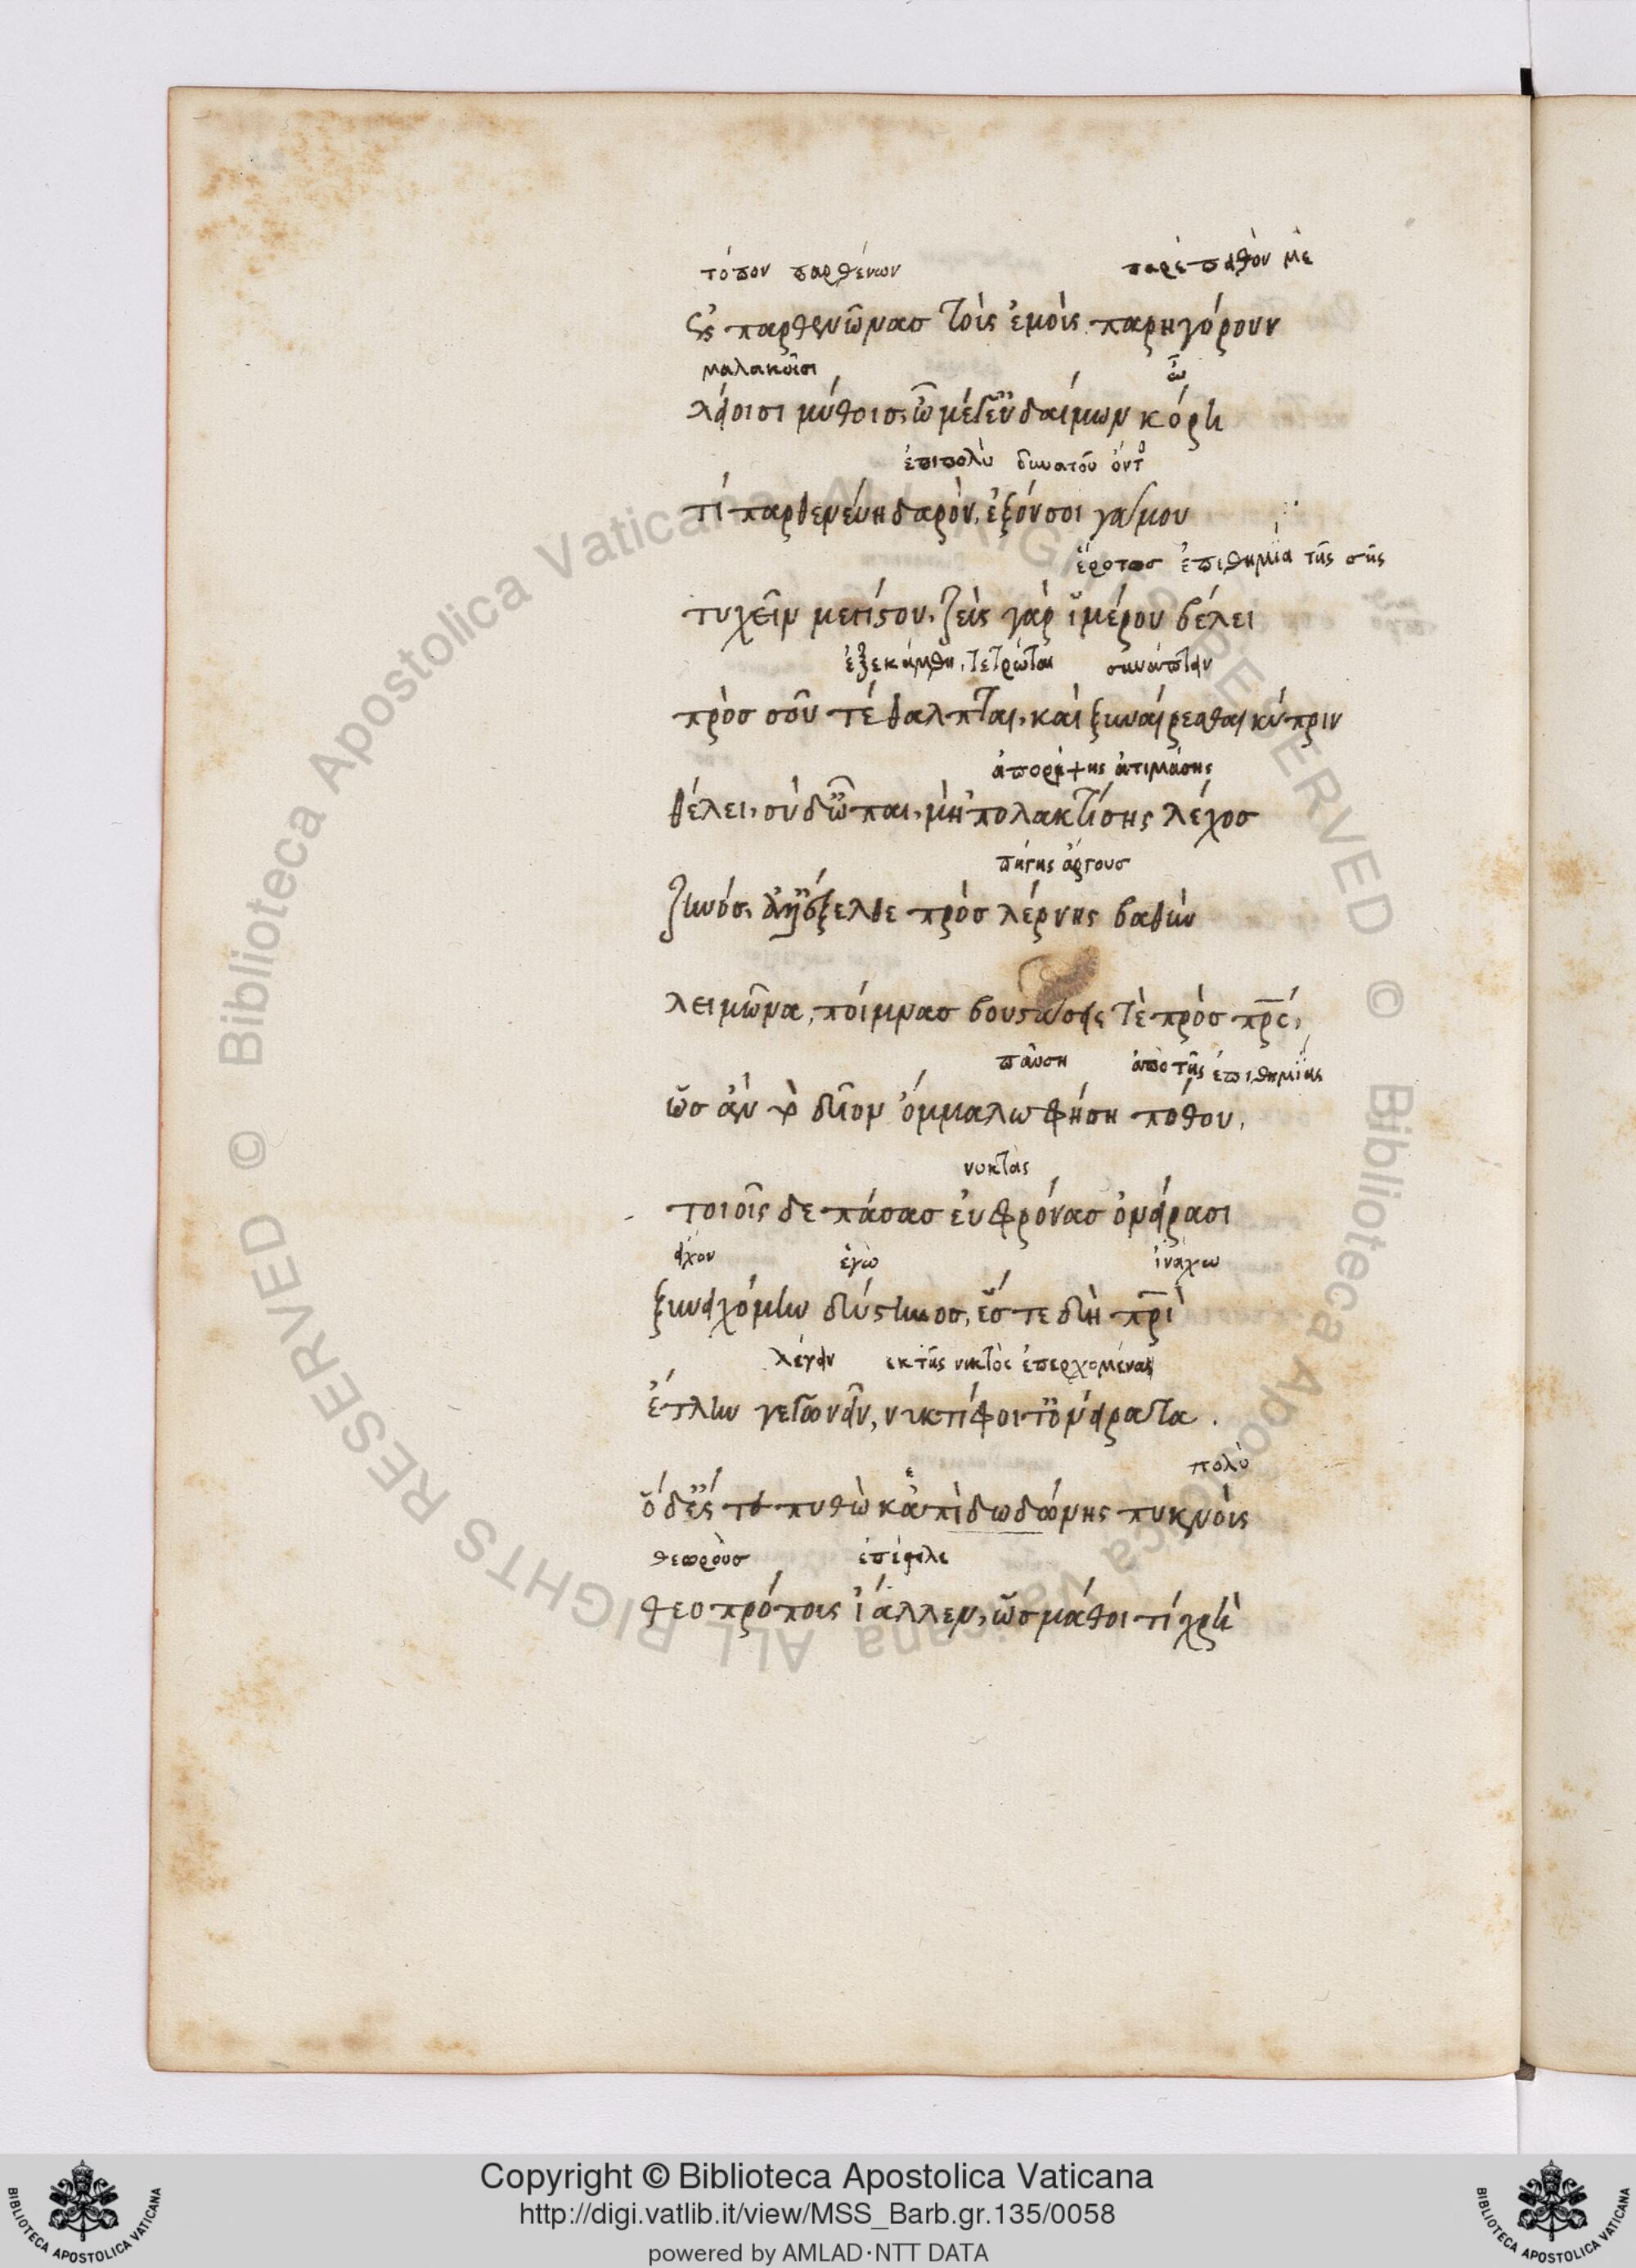 τόπον παρθένων παρέπειθόν με
ἐς παρθενῶνας τοῖς ἐμοῖς παρηγόρουν
μαλακοῖσι ὦ
λείοισι μύθοισ, ὦ μέγ' εὔδαιμον κόρη
ἐπιπολὺ δυνατοῦ ὄντος
τί παρθενεύη δαρὸν, ἐξόν σοι γάμου
ἔρωτος ἐπιθυμία τῆς σῆς
τυχεῖν μεγίστου, ζεὺς γὰρ ἱμέρου βέλει
ἐξεκαύθη, τέτρωται συνάπτειν
πρὸσ σοῦ τέθαλπται, καὶ ξυναίρεσθαι κύπριν
ἀπορρίψης ἀτιμάσης
θέλει, σὺ δ' ὦ παι, μὴ 'πολακτίσης λέχοσ
πηγῆς ἄργους
ζηνόσ, ἀλλ' ἔξελθε πρὸσ λέρνης βαθὺν
λειμῶνα, ποίμνασ βουστάσεις τὲ πρὸσ πρς,
παύση ἀπὸ τῆς ἐπιθυμίας
ὡσ ἂν τὸ δῖον ὄμμα λωφήση πόθου,
νυκτὰς
τοιοῖς δε πάσασ εὐφρόνασ ὀνείρασι
εἶχον ἐγὼ ἰνάχω
ξυνειχόμην δύστηνοσ, ἔστε δὴ πρὶ
λέγειν ἐκ τῆς νυκτὸς ἐπερχομένας
ἔτλην γεγωνεῖν, νυκτίφοιτ' ὀνείρατα.
ε πολὺ
ὁ δ' ἔς τε πυθὼ κἀπὶ δωδώνης πυκνοὺς
θεωροὺσ ἐπέμπε
θεοπρόπους ἴαλλεν, ὡσ μάθοι τί χρὴ
Copyright © Biblioteca Apostolica Vaticana
http://digi.vatlib.it/view/MSS_Barb.gr.135/0058
powered by AMLAD·NTT DATA